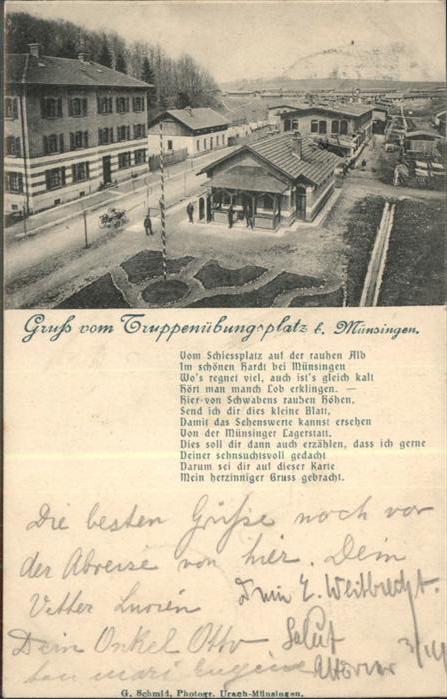 Gruß vom Truppenübungsplatz b. Münsingen.
Vom Schiessplatz auf der rauhen Alb
Im schönen Hardt bei Münsingen
Wo's regnet viel, auch ist's gleich kalt
Hört man manch Lob erklingen. —
Hier von Schwabens rauhen Höhen,
Send ich dir dies kleine Blatt,
Damit das Sehenswerte kannst ersehen
Von der Münsinger Lagerstatt.
Dies soll dir dann auch erzählen, dass ich gerne
Deiner sehnsuchtsvoll gedacht
Darum sei dir auf dieser Karte
Mein herzinniger Gruss gebracht.
Die besten Grüße noch vor
der Abreise von hier. Dein
Vetter
Dein E. Weitbrecht.
Dein Onkel Otto
Salut
ton mari Eugène
G. Schmid, Photogr. Urach-Münsingen.